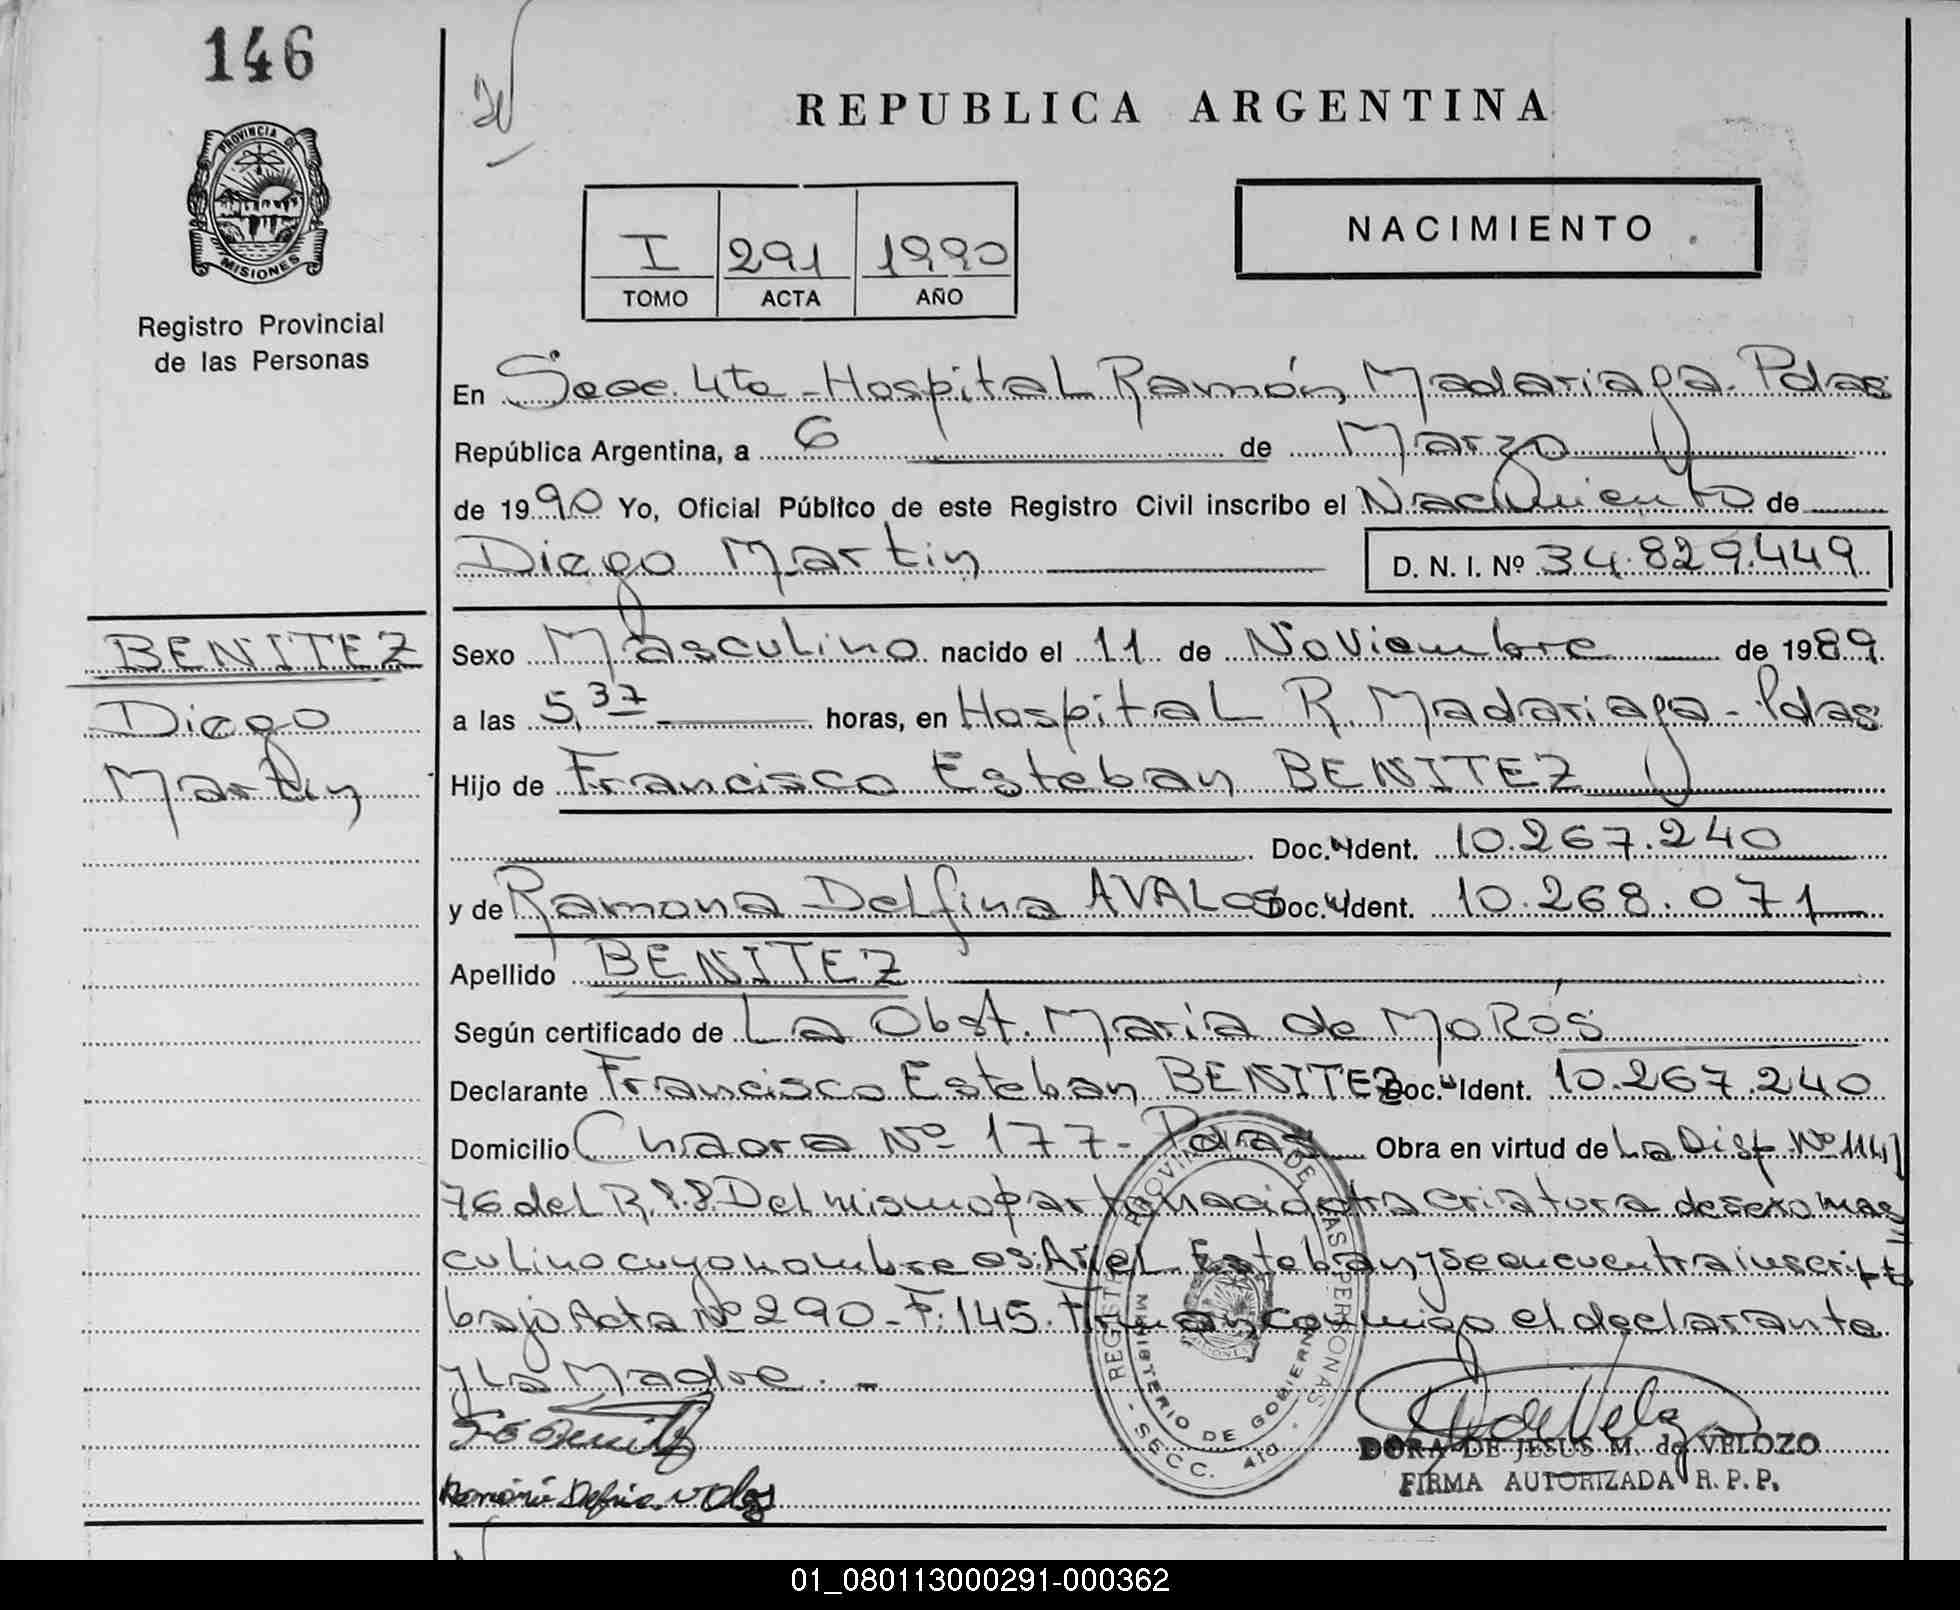 146
PROVINCIA DE
MISIONES
Registro Provincial
de las Personas
REPUBLICA ARGENTINA
I 291 1990
TOMO ACTA AÑO
NACIMIENTO
En Secc. 4ta - Hospital Ramón Madariaga. Pdas
República Argentina, a 6 de Marzo
de 1990 Yo, Oficial Público de este Registro Civil inscribo el Nacimiento de
Diego Martin D. N. I. Nº 34.829.449
BENITEZ
Diego
Martin
Sexo Masculino nacido el 11 de Noviembre de 1989
a las 5,37 horas, en Hospital R. Madariaga - Pdas
Hijo de Francisco Esteban BENITEZ
Doc. Ident. 10.267.240
y de Ramona Delfina AVALOS Doc. Ident. 10.268.071
Apellido BENITEZ
Según certificado de La Obst. Maria de MoRós
Declarante Francisco Esteban BENITEZ Doc. Ident. 10.267.240
Domicilio Chacra Nº 177 - Pdas Obra en virtud de La Disp. Nº 114/
76 del R.P.P. Del mismo parto nació otra criatura de sexo mas
culino cuyo nombre es: Ariel Esteban y se encuentra inscripto
bajo Acta Nº 290 - F: 145. Firman conmigo el declarante
y La Madre. -
REGISTRO PROVINCIAL DE LAS PERSONAS
MINISTERIO DE GOBIERNO
- SECC. 4ta -
F E Benitez
DORA DE JESUS M. de VELOZO
FIRMA AUTORIZADA R. P. P.
01_080113000291-000362